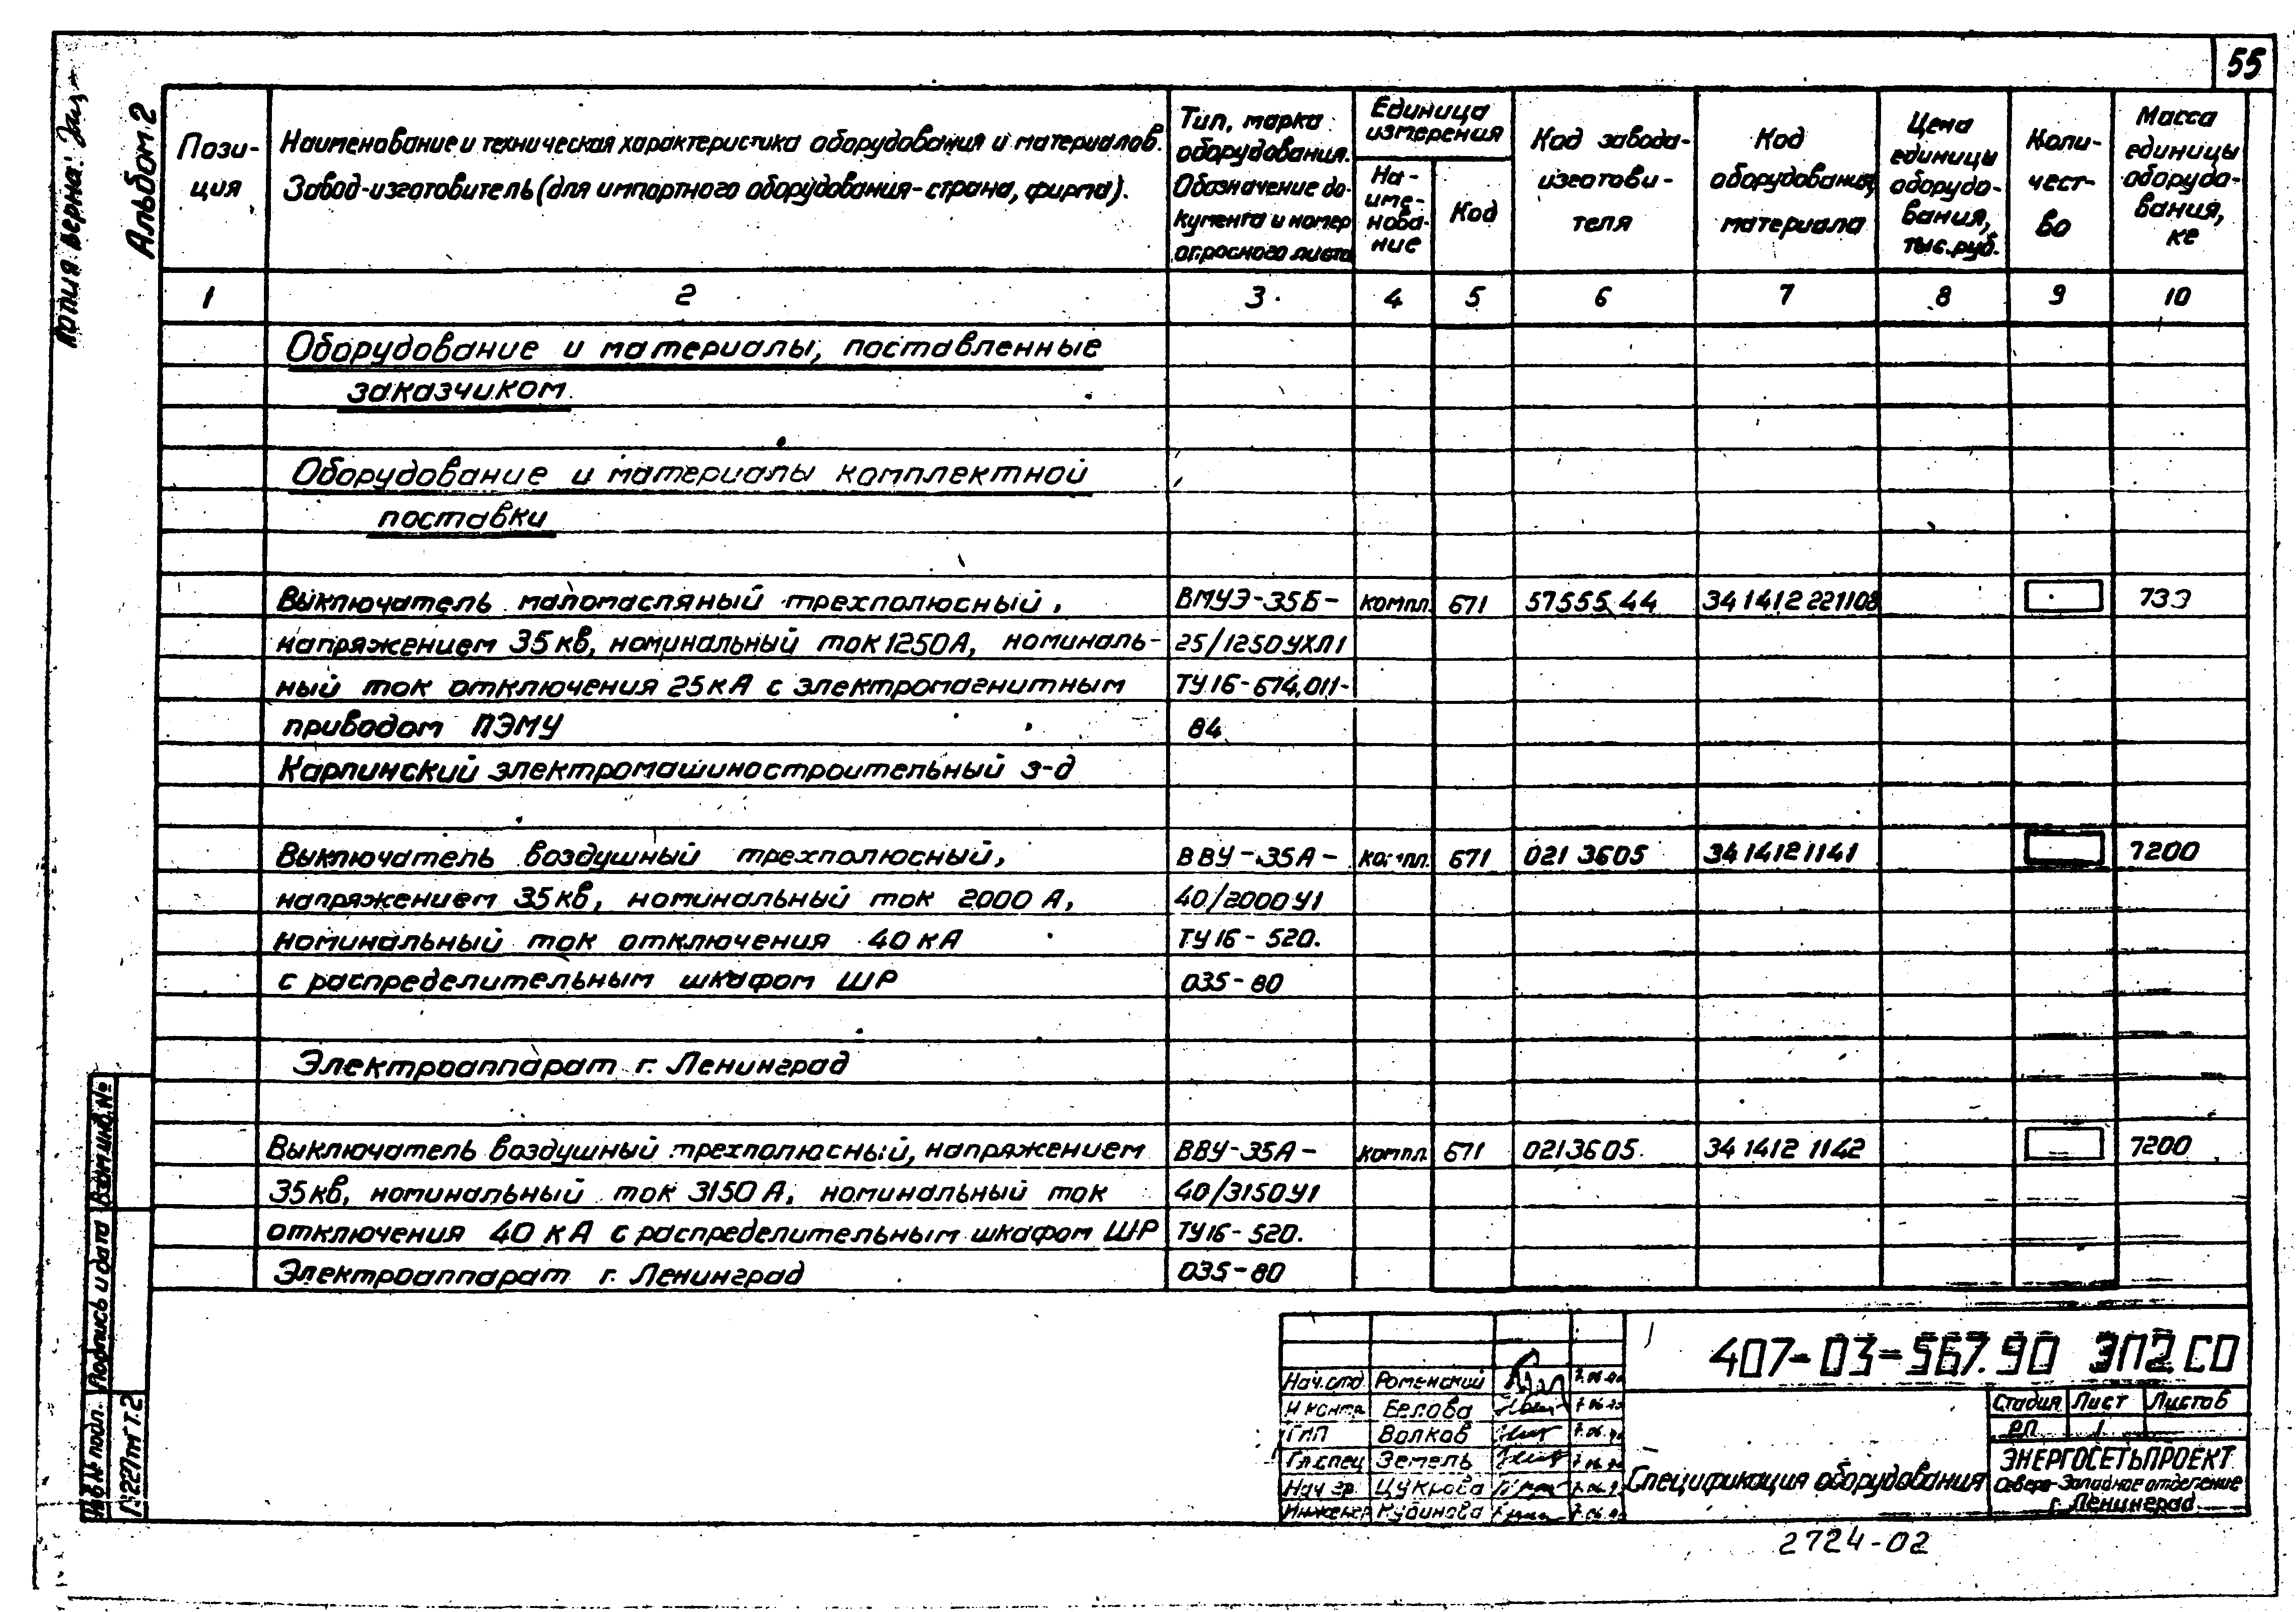 55
Копия верна:
Альбом 2
Пози-
ция
Наименование и техническая характеристика оборудования и материалов.
Завод-изготовитель (для импортного оборудования-страна, фирма).
Тип, марка
оборудования.
Обозначение до-
кумента и номер
опросного листа
Единица
измерения
На-
име-
нова-
ние
Код
Код завода-
изготови-
теля
Код
оборудования,
материала
Цена
единицы
оборудо-
вания,
тыс.руб.
Коли-
чест-
во
Масса
единицы
оборудо-
вания,
кг
1 2 3 4 5 6 7 8 9 10
Оборудование и материалы, поставленные
заказчиком.
Оборудование и материалы комплектной
поставки
Выключатель маломасляный трехполюсный, ВМУЭ-35Б- компл. 671 57555 44 34 1412 221108 733
напряжением 35 кв, номинальный ток 1250А, номиналь- 25/1250УХЛ1
ный ток отключения 25кА с электромагнитным ТУ 16-674.011-
приводом ПЭМУ 84
Карпинский электромашиностроительный з-д
Выключатель воздушный трехполюсный, ВВУ-35А- компл. 671 021 3605 34 1412 1141 7200
напряжением 35 кв, номинальный ток 2000 А, 40/2000У1
номинальный ток отключения 40 кА ТУ 16-520.
с распределительным шкафом ШР 035-80
Электроаппарат г. Ленинград
Выключатель воздушный трехполюсный, напряжением ВВУ-35А- компл. 671 0213605. 34 1412 1142 7200
35 кв, номинальный ток 3150 А, номинальный ток 40/3150У1
отключения 40 кА с распределительным шкафом ШР ТУ16-520.
Электроаппарат г. Ленинград 035-80
Взам.инв.№
Подпись и дата
Инв.№ подл.
407-03-567.90 ЭП2.СО
Нач.отд. Роменский 7.06.90
Н.контр. Белова 7.06.90
ГИП Волков 7.06.90
Гл.спец Земель 7.06.90
Нач.гр. Цукрова 7.06.90
Инженер Кудинова 7.06.90
Спецификация оборудования
Стадия Лист Листов
РП 1
ЭНЕРГОСЕТЬПРОЕКТ
Северо-Западное отделение
г. Ленинград
2724-02